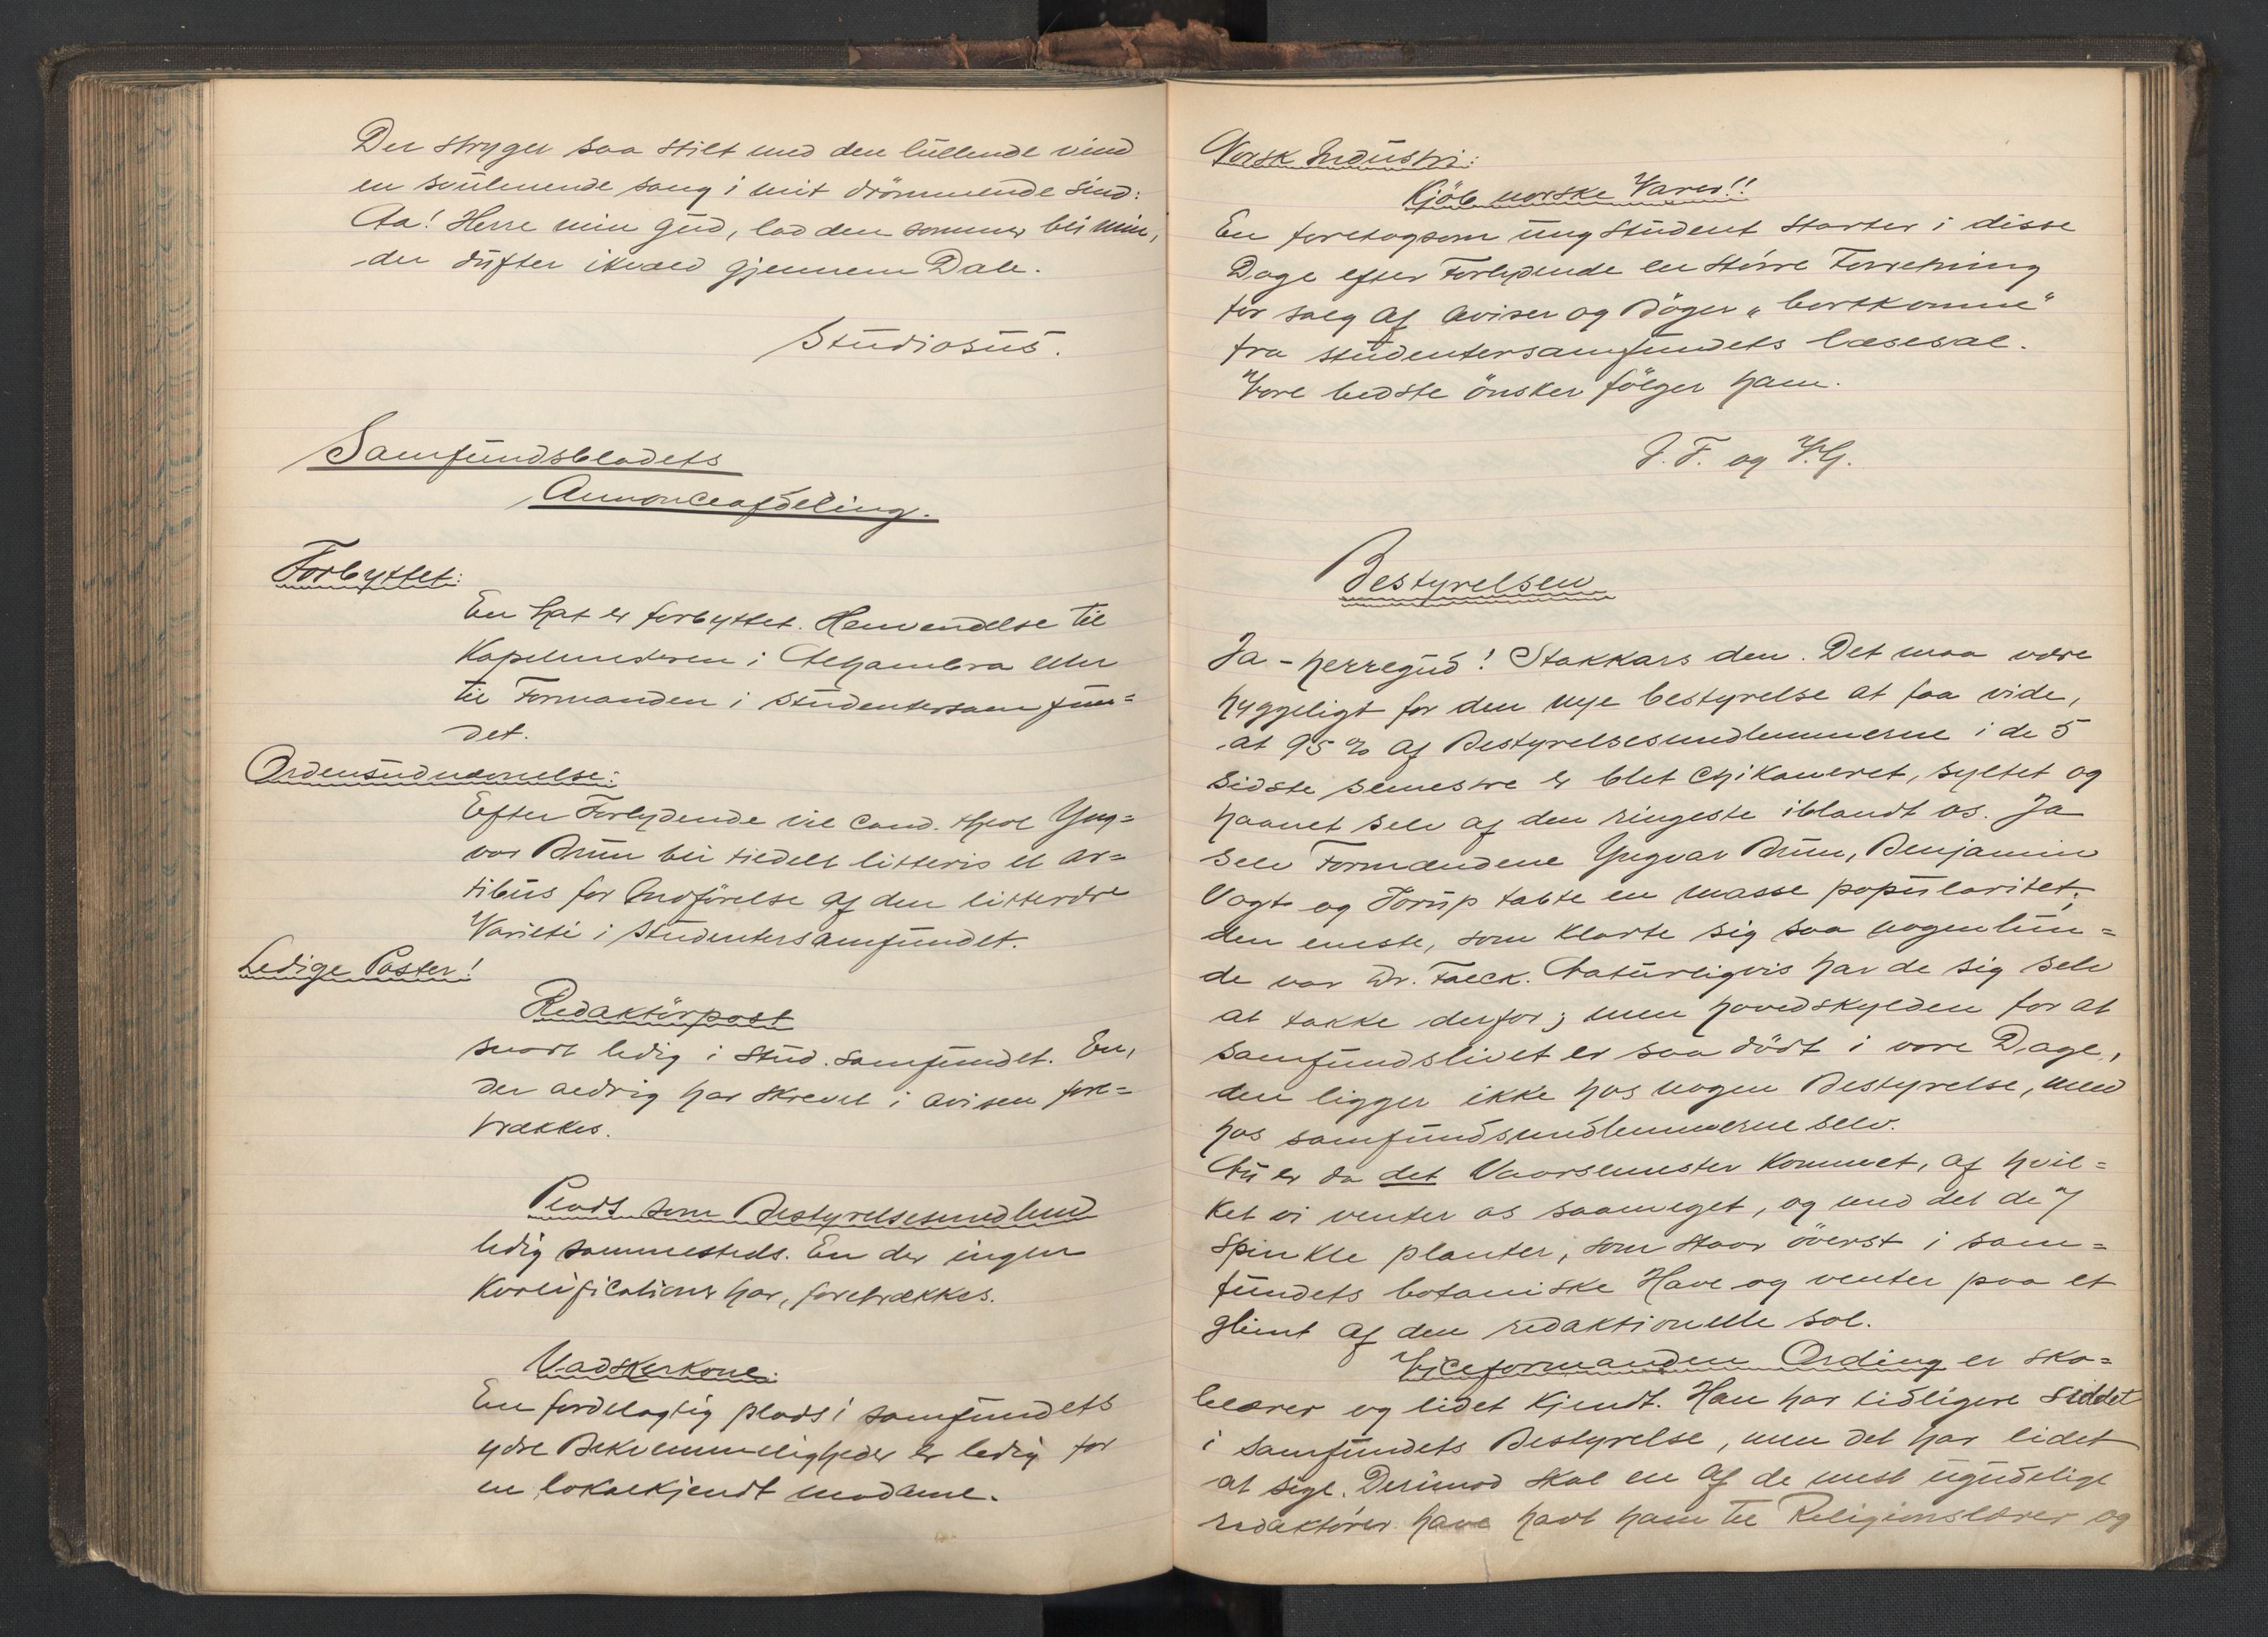 Der stryger saa stilt med den lullende vind
en smilende sang i mit drömmende sind:
Aa! Herre min gud, lad den sommer bli min,
der dufter ikvæld gjennem Dale.
Studiosus.
Samfundsbladets
Annonceafdeling.
Forbyttet:
En hat er forbyttet. Henvendelse til
Kapelmesteren i Alhambra eller
til Formanden i studentersamfun=
det.
Ordensudnævnelse:
Efter Forlydende vil cand. theol Yng=
var Brun bli tildelt litteris et ar=
tibus for Indförelse af den litterære
Varieté i Studentersamfundet.
Ledige Poster!
Redaktörpost
snart ledig i Stud. samfundet. En,
der aldrig har skrevet i avisen fore=
trækkes.
Plads som Bestyrelsesmedlem
ledig sammesteds. En der ingen
Kvalifications har, foretrækkes.
Vadskerkone:
En fordelagtig plads i samfundets
ydre Bekvemmeligheder er ledig for
en lokalkjendt madame.
Norsk Industri:
Kjöb norske Varer!!
En foretagsom ung Student starter i disse
Dage efter Forlydende en större Forretning
for salg af aviser og Böger "bortkomne"
fra studentersamfundets læsesal.
Vore bedste önsker fölger ham.
J. F. og V.G.
Bestyrelsen
Ja - herregud! Stakkars den. Det maa være
hyggeligt for den nye bestyrelse at faa vide,
at 95 % af Bestyrelsesmedlemmerne i de 5
sidste semestre er blet chikaneret, syltet og
haanet selv af den ringeste iblandt os. Ja
selv Formændene Yngvar Brun, Benjamin
Vogt og Torup tabte en masse popularitet;
den eneste, som klarte sig saa nogenlun=
de var Dr. Falck. Naturligvis har de sig selv
at takke derfor; men hovedskylden for at
samfundslivet er saa dödt i vore Dage,
den ligger ikke hos nogen Bestyrelse, men
hos samfundsmedlemmerne selv.
Nu er da det Vaarsemester kommet, af hvil=
ket vi venter os saameget, og med det de 7
spinkle planter, som staar överst i sam=
fundets botaniske Have og venter paa et
glimt af den redaktionelle sol.
Viceformanden Ording er sko=
lelærer og lidet kjendt. Han har tidligere siddet
i samfundets Bestyrelse, men det har lidet
at sige. Derimod skal en af de mest ugudelige
redaktörer have havt ham til Religionslærer og